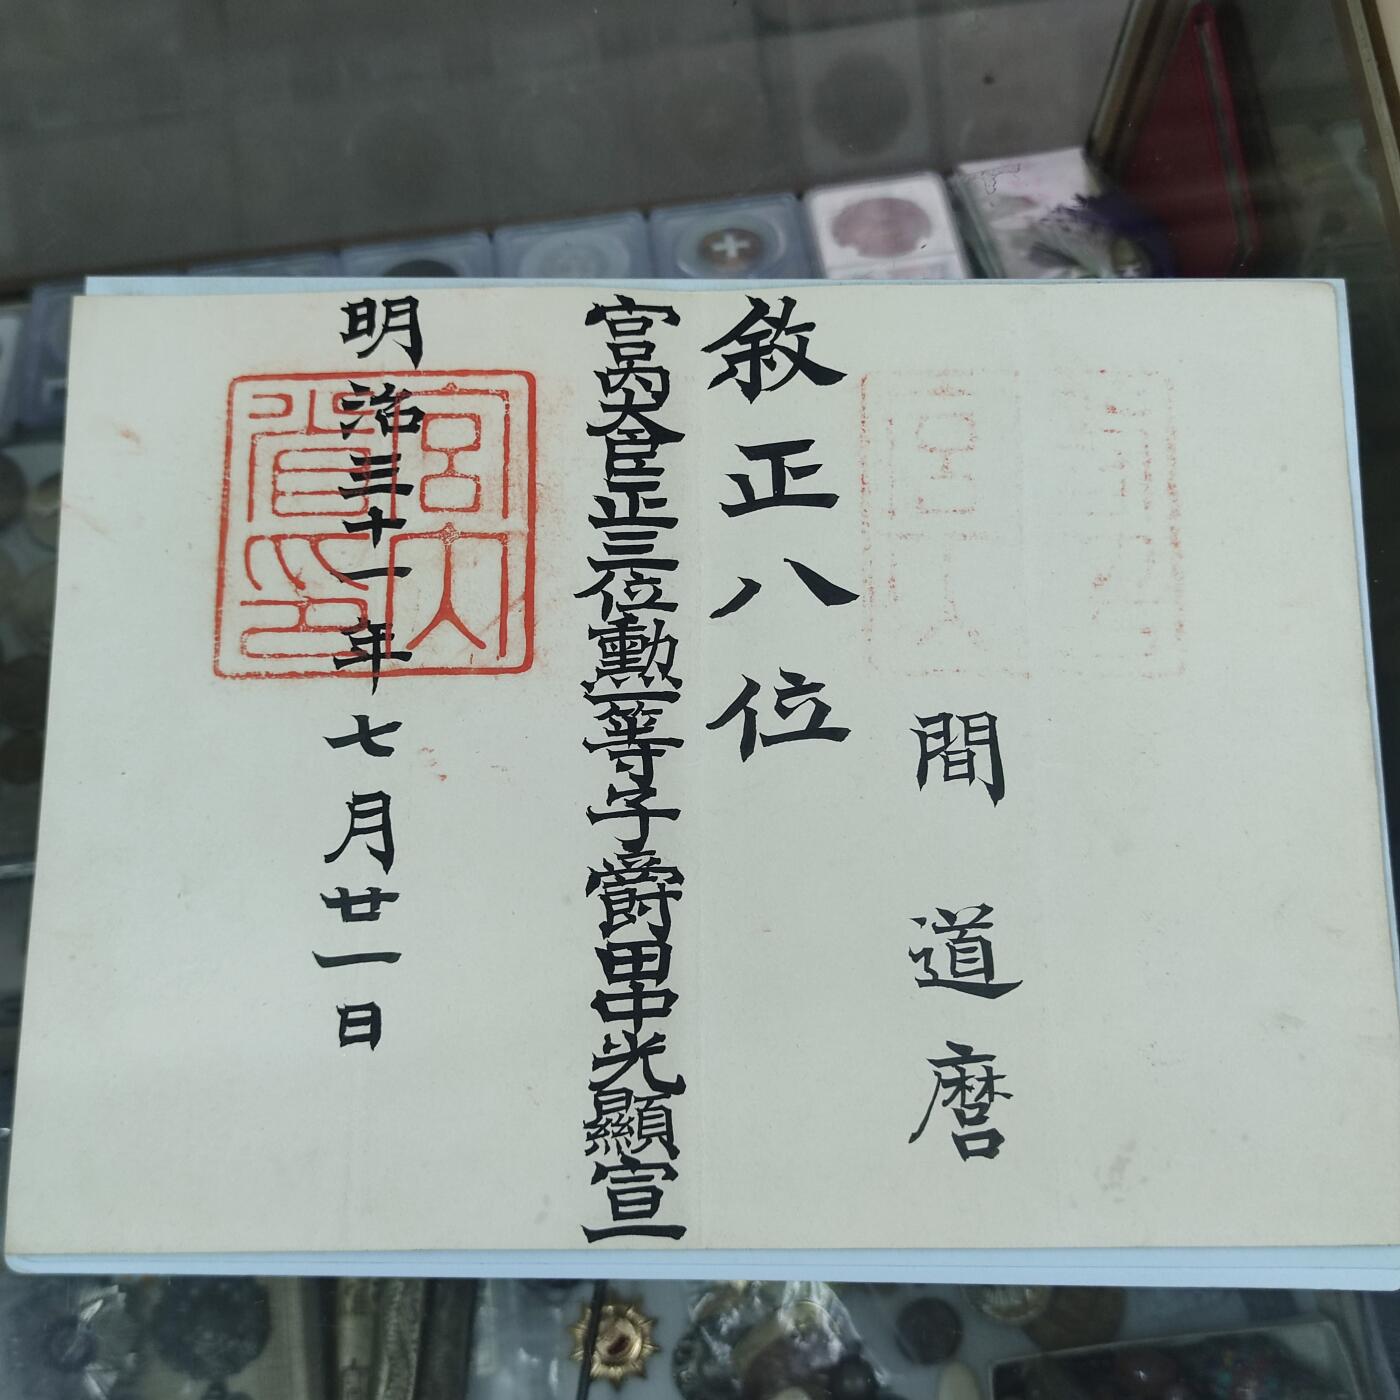 間道磨
敘正八位
宮内大臣正三位勳一等子爵田中光顯宣
明治三十一年七月廿一日
宮内
省印